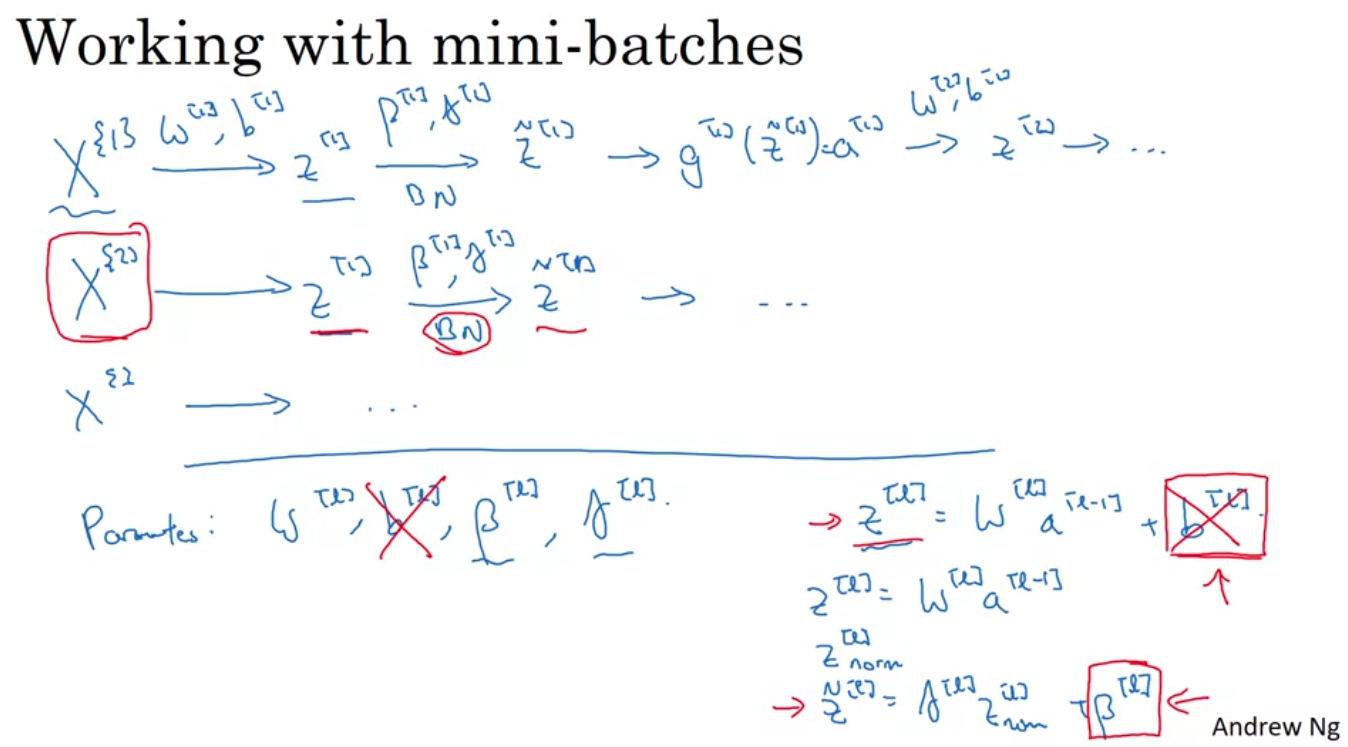 Working with mini-batches
X^{1} W^[1], b^[1] → z^[1] β^[1], γ^[1] → BN z̃^[1] → g^[1](z̃^[1])=a^[1] W^[2], b^[2] → z^[2] → ...
X^{2} → z^[1] β^[1], γ^[1] → BN z̃^[1] → ...
X^{} → ...
Parameters: W^[l], b^[l], β^[l], γ^[l].
→ z^[l] = W^[l] a^[l-1] + b^[l].
z^[l] = W^[l] a^[l-1]
z^[l] norm
→ z̃^[l] = γ^[l] z^[l] norm + β^[l] ←
Andrew Ng